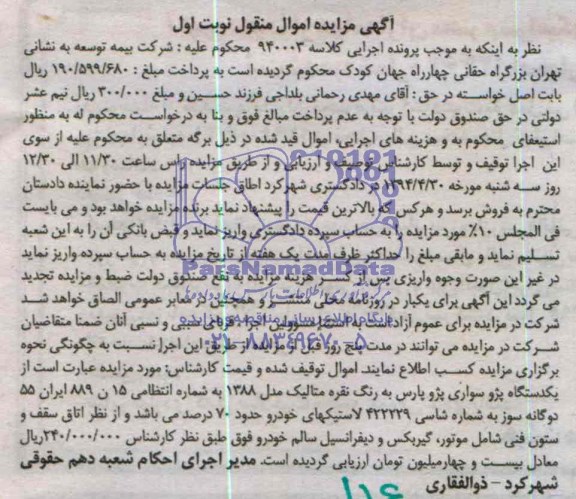 آگهی مزایده اموال منقول نوبت اول
نظر به اینکه به موجب پرونده اجرایی کلاسه ۹۴۰۰۰۳ محکوم علیه : شرکت بیمه توسعه به نشانی
تهران بزرگراه حقانی چهارراه جهان کودک محکوم گردیده است به پرداخت مبلغ : ۱۹۰/۵۹۹/۶۸۰ ریال
بابت اصل خواسته در حق : آقای مهدی رحمانی بلداجی فرزند حسین و مبلغ ۳۰۰/۰۰۰ ریال نیم عشر
دولتی در حق صندوق دولت با توجه به عدم پرداخت مبالغ فوق و بنا به درخواست محکوم له به منظور
استیفای محکوم به و هزینه های اجرایی، اموال قید شده در ذیل برگه متعلق به محکوم علیه از سوی
این اجرا توقیف و توسط کارشناس توصیف و ارزیابی و از طریق مزایده راس ساعت ۱۱/۳۰ الی ۱۲/۳۰
روز سه شنبه مورخه ۱۳۹۴/۴/۳۰ در دادگستری شهرکرد اطاق جلسات مزایده با حضور نماینده دادستان
محترم به فروش برسد و هرکس که بالاترین قیمت را پیشنهاد نماید برنده مزایده خواهد بود و می بایست
فی المجلس ۱۰٪ مورد مزایده را به حساب سپرده دادگستری واریز نماید و قبض بانکی آن را به این شعبه
تسلیم نماید و مابقی مبلغ را حداکثر ظرف مدت یک هفته از تاریخ مزایده به حساب سپرده واریز نماید
در غیر این صورت وجوه واریزی پس از کسر هزینه مزایده به نفع صندوق دولت ضبط و مزایده تجدید
می گردد این آگهی برای یکبار در روزنامه محلی منتشر و همچنین در معابر عمومی الصاق خواهد شد
شرکت در مزایده برای عموم آزاد است به استثنا مسوولین اجرا، قربای سببی و نسبی آنان ضمنا متقاضیان
شرکت در مزایده می توانند در مدت پنج روز قبل از مزایده از طریق این اجرا نسبت به چگونگی نحوه
برگزاری مزایده کسب اطلاع نمایند. اموال توقیف شده و قیمت کارشناس: مورد مزایده عبارت است از
یکدستگاه پژو سواری پژو پارس به رنگ نقره متالیک مدل ۱۳۸۸ به شماره انتظامی ۱۵ ن ۸۸۹ ایران ۵۵
دوگانه سوز به شماره شاسی ۴۲۲۲۲۹ لاستیکهای خودرو حدود ۷۰ درصد می باشد و از نظر اتاق سقف و
ستون فنی شامل موتور، گیربکس و دیفرانسیل سالم خودرو فوق طبق نظر کارشناس ۲۴۰/۰۰۰/۰۰۰ریال
معادل بیست و چهارمیلیون تومان ارزیابی گردیده است. مدیر اجرای احکام شعبه دهم حقوقی
شهرکرد - ذوالفقاری
ParsNamadData
پایگاه اطلاع رسانی مناقصه و مزایده
۰۲۱-۸۸۳۴۹۶۷۰-۵